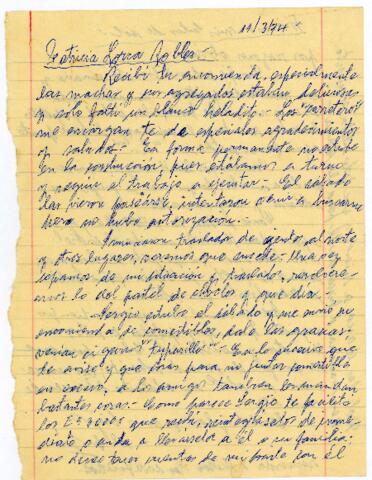 19/3/74.-
Patricia Lorca Robles.-
Recibí tu encomienda, especialmente
las machas y sus agregados estaban deliciosos
y solo faltó un blanco heladito.- Los "carreteros"
me encargan te de especiales agradecimientos
y saludos.- En forma permanente no estoy
en la construcción, pues estamos a turno
y según el trabajo a ejecutar.- El sábado
las vieron pasearse, intentaron venir a buscarme
pero no hubo autorización.-
traslados de gente al norte
y otros lugares, veremos que sucede.- Una vez
sepamos de mi situación y traslado, resolvere-
mos lo del pastel de choclos y que día.-
Sergio estuvo el sábado y me envió su
encomienda de comestibles, dale las gracias.-
venían cigarros " ".- En lo sucesivo que
te aviso y que para no juntar comestibles
en exceso, a los amigos también les mandan
bastantes cosas.- Como parece Sergio te facilitó
los E° 5.000 que recibí, reintégraselos de inme-
diato o anda a llevárselos a él o su familia;
no dejes tener cuentas de  con él